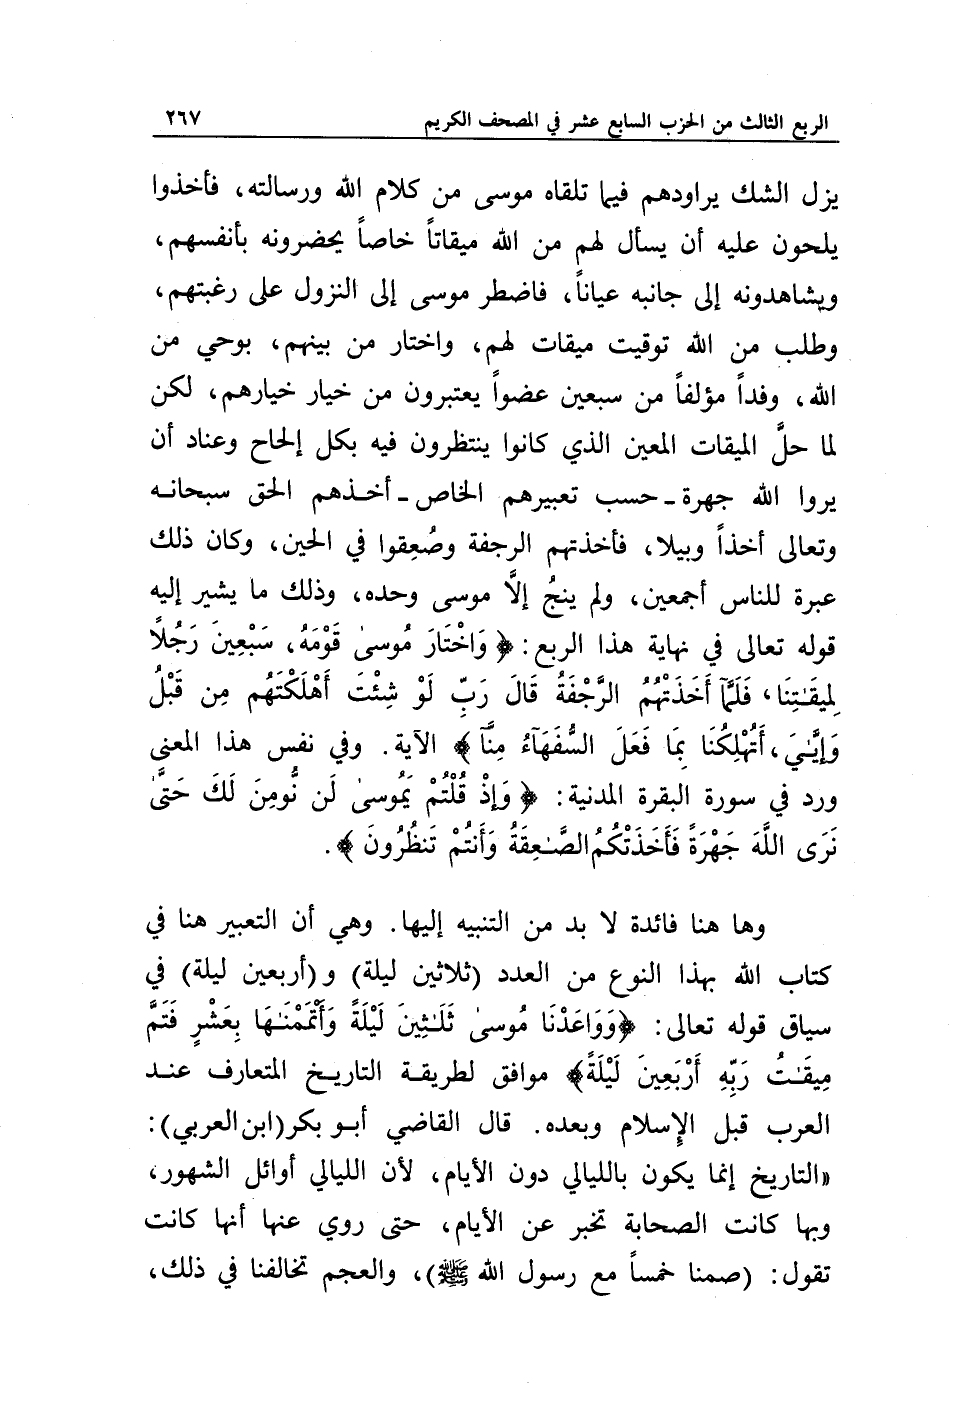 الربع الثالث من الحزب السابع عشر في المصحف الكريم ٢٦٧
يزل الشك يراودهم فيما تلقاه موسى من كلام الله ورسالته، فأخذوا
يلحون عليه أن يسأل لهم من الله ميقاتاً خاصاً يحضرونه بأنفسهم،
ويشاهدونه إلى جانبه عياناً، فاضطر موسى إلى النزول على رغبتهم،
وطلب من الله توقيت ميقات لهم، واختار من بينهم، بوحي من
الله، وفداً مؤلفاً من سبعين عضواً يعتبرون من خيار خيارهم، لكن
لما حلَّ الميقات المعين الذي كانوا ينتظرون فيه بكل إلحاح وعناد أن
يروا الله جهرة ـ حسب تعبيرهم الخاص ـ أخذهم الحق سبحانه
وتعالى أخذاً وبيلا، فأخذتهم الرجفة وصُعِقوا في الحين، وكان ذلك
عبرة للناس أجمعين، ولم ينجُ إلَّا موسى وحده، وذلك ما يشير إليه
قوله تعالى في نهاية هذا الربع: ﴿ وَاخْتَارَ مُوسىٰ قَوْمَهُ، سَبْعِينَ رَجُلًا
لِمِيقَـٰتِنَا، فَلَمَّآ أَخَذَتْهُمُ الرَّجْفَةُ قَالَ رَبِّ لَوْ شِئْتَ أَهْلَكْتَهُم مِن قَبْلُ
وَإِيَّـٰيَ، أَتُهْلِكُنَا بِمَا فَعَلَ السُّفَهَآءُ مِنَّآ ﴾ الآية. وفي نفس هذا المعنى
ورد في سورة البقرة المدنية: ﴿ وَإِذْ قُلْتُمْ يَـٰمُوسىٰ لَن نُّومِنَ لَكَ حَتَّىٰ
نَرَى اللَّهَ جَهْرَةً فَأَخَذَتْكُمُ الصَّـٰعِقَةُ وَأَنتُمْ تَنظُرُونَ ﴾.
وها هنا فائدة لا بد من التنبيه إليها. وهي أن التعبير هنا في
كتاب الله بهذا النوع من العدد (ثلاثين ليلة) و (أربعين ليلة) في
سياق قوله تعالى: ﴿وَوَاعَدْنَا مُوسىٰ ثَلَـٰثِينَ لَيْلَةً وَأَتْمَمْنَـٰهَا بِعَشْرٍ فَتَمَّ
مِيقَـٰتُ رَبِّهِ أَرْبَعِينَ لَيْلَةً﴾ موافق لطريقة التاريخ المتعارف عند
العرب قبل الإسلام وبعده. قال القاضي أبو بكر (ابن العربي):
«التاريخ إنما يكون بالليالي دون الأيام، لأن الليالي أوائل الشهور،
وبها كانت الصحابة تخبر عن الأيام، حتى روي عنها أنها كانت
تقول: (صمنا خمساً مع رسول الله ﷺ)، والعجم تخالفنا في ذلك،